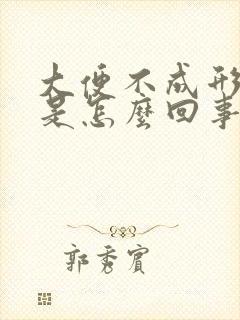 大便不成形
是怎麼回事
郭秀賓